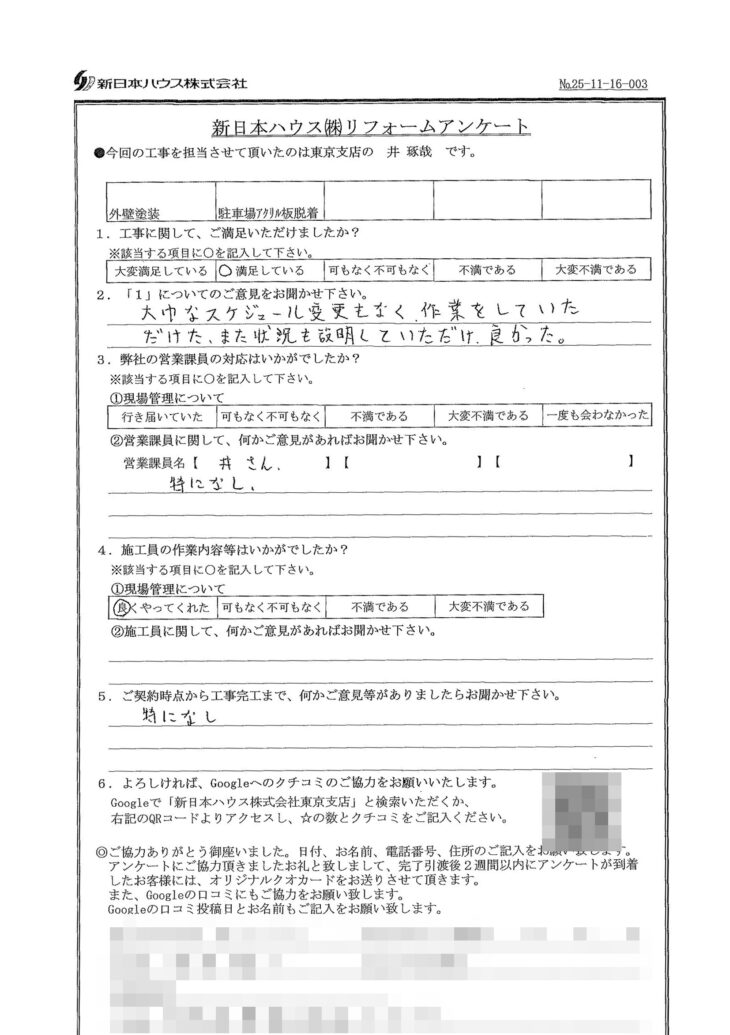 新日本ハウス株式会社
№25-11-16-003
新日本ハウス㈱リフォームアンケート
●今回の工事を担当させて頂いたのは東京支店の 井 琢哉 です。
外壁塗装 駐車場ｱｸﾘﾙ板脱着
1．工事に関して、ご満足いただけましたか？
※該当する項目に○を記入して下さい。
大変満足している ○満足している 可もなく不可もなく 不満である 大変不満である
2．「1」についてのご意見をお聞かせ下さい。
大巾なスケジュール変更もなく、作業をしていた
だけた、また状況も説明していただけ、良かった。
3．弊社の営業課員の対応はいかがでしたか？
※該当する項目に○を記入して下さい。
①現場管理について
行き届いていた 可もなく不可もなく 不満である 大変不満である 一度も会わなかった
②営業課員に関して、何かご意見があればお聞かせ下さい。
営業課員名【 井 さん、 】【 】【 】
特になし、
4．施工員の作業内容等はいかがでしたか？
※該当する項目に○を記入して下さい。
①現場管理について
良くやってくれた 可もなく不可もなく 不満である 大変不満である
②施工員に関して、何かご意見があればお聞かせ下さい。
5．ご契約時点から工事完工まで、何かご意見等がありましたらお聞かせ下さい。
特になし
6．よろしければ、Googleへのクチコミのご協力をお願いいたします。
Googleで「新日本ハウス株式会社東京支店」と検索いただくか、
右記のQRコードよりアクセスし、☆の数とクチコミをご記入ください。
◎ご協力ありがとう御座いました。日付、お名前、電話番号、住所のご記入をお願い致します。
アンケートにご協力頂きましたお礼と致しまして、完了引渡後２週間以内にアンケートが到着
したお客様には、オリジナルクオカードをお送りさせて頂きます。
また、Googleの口コミにもご協力をお願い致します。
Googleの口コミ投稿日とお名前もご記入をお願い致します。